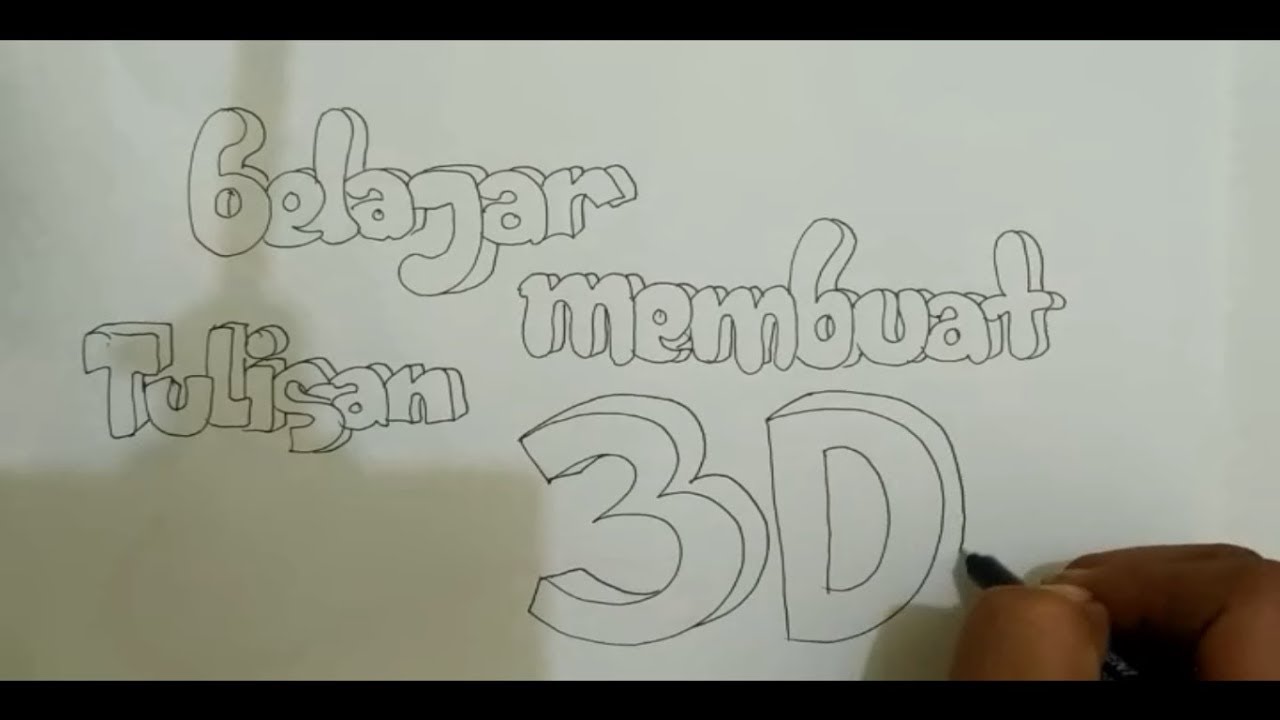 Belajar
membuat
Tulisan
3D